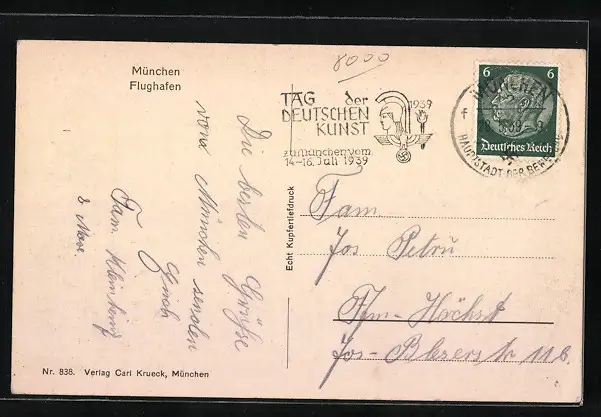 8000
München
Flughafen
TAG der
DEUTSCHEN
KUNST
zu München vom
14-16. Juli 1939
1939
6 6
Deutsches Reich
MÜNCHEN
HAUPTSTADT DER BEWEGUNG
f
Die besten Grüße
vom München senden
Fam
Echt Kupfertiefdruck
Fam.
Jos Petru
Ffm-Höchst
Jos-
Nr. 838. Verlag Carl Krueck, München